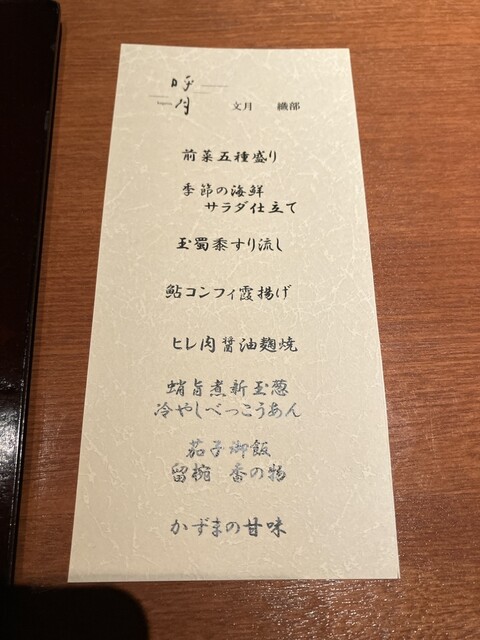 月
文月 織部
前菜五種盛り
季節の海鮮
サラダ仕立て
玉蜀黍すり流し
鮎コンフィ霞揚げ
ヒレ肉醤油麹焼
蛸旨煮新玉葱
冷やしべっこうあん
茄子御飯
留椀 香の物
かずまの甘味